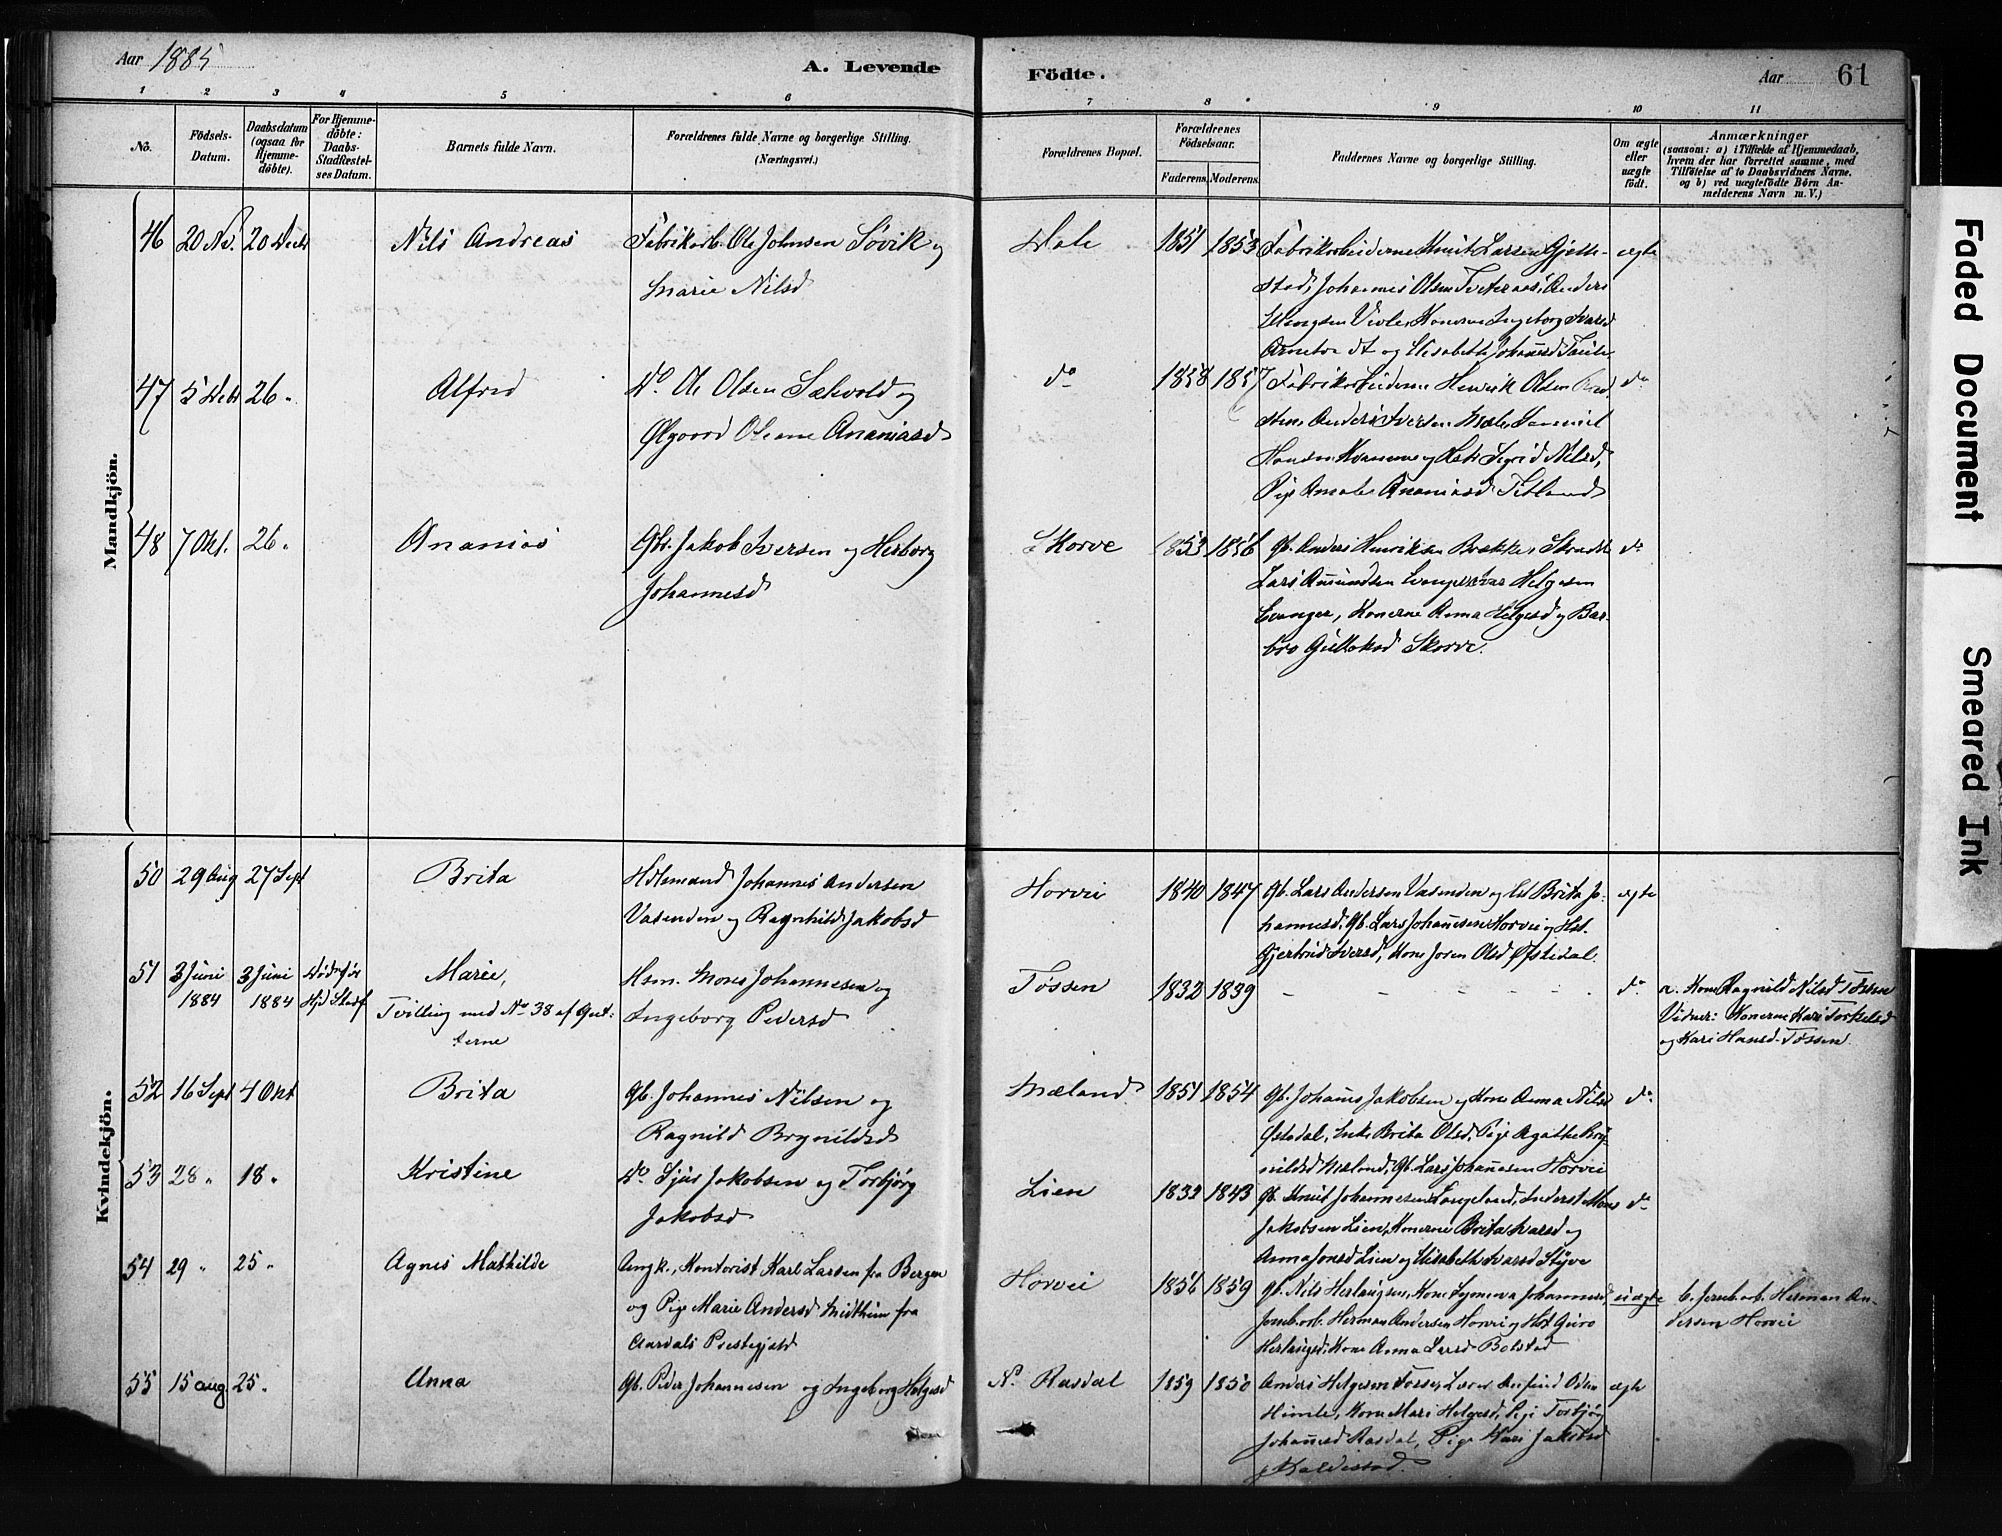 Aar 1885
A. Levende
Födte.
Aar
61
1 2 3 4 5 6 7 8 9 10 11
No.
Födsels-
Datum.
Daabsdatum
(ogsaa for
Hjemme-
döbte).
For Hjemme-
döbte:
Daabs-
Stadfæstel-
ses Datum.
Barnets fulde Navn.
Forældrenes fulde Navne og borgerlige Stilling.
(Næringsvei.)
Forældrenes Bopæl.
Forældrenes
Födselsaar.
Faderens.
Moderens.
Faddernes Navne og borgerlige Stilling.
Om ægte
eller
uægte
födt.
Anmærkninger
(saasom: a) i Tilfælde af Hjemmedaab,
hvem der har forrettet samme, med
Tilföielse af to Daabsvidners Navne.
og b) ved uægtefödte Börn An-
melderens Navn m. V.)
Mandkjön.
46 20 Nv. 20 Decb Nils Andreas Fabrikarb. Ole Johnsen Søvik og
Marie Nilsd
Dale 1851 1853 Fabrikarbeiderne Knut Larsen Gjette-
stad, Johannes Olsen Tveteraas, Anders
Konerne Ingeborg Ivarsd
og Elisabeth Johansd
ægte
47 5 Deb 26 " Alfred Do. Ole Olsen Sælvold og
Olianne Ananiasd
do 1858 1857 Fabrikarbeiderne Henrik Olsen
Anders Iversen
Sigrid Nilsd,
Pige Amalie Ananiasd
do
48 7 Okt. 26 " Ananias Gbr. Jakob Iversen og Herborg
Johannesd
Skorve 1853 1856 Gb. Anders Henriksen Brække,
Lars Amundsen Evanger, Helgesen
Evanger, Konerne Anna Helgesd og Bar-
bro Gulleksd Skorve.
do
Kvindekjön.
50 29 Aug 27 Sept Brita Johannes Andersen
Vasenden og Ragnhild Jakobsd
Horvei 1840 1847 Gb. Lars Andersen Vasenden og Brita Jo-
hannesd, Gb. Lars Johannesen Horvei og Hst.
Gjertrud Iversd, Kone Joren Olsd Øfstedal.
ægte
51 3 Juni 1884 3 Juni 1884 Marie,
Tvilling med No 38 af Gut-
terne
Hsm. Mons Johannesen og
Ingeborg Pedersd
Tøssen 1832 1839 - - - - - do
a. Kone Ragnild Nilsd Tøssen
Vidner: Konerne Kari Torkelsd
og Kari Hansd Tøssen.
52 16 Sept 4 Okt Brita Gb. Johannes Nilsen og
Ragnild Brynildsd
Mæland 1851 1854 Gb. Johannes Jakobsen og Kone Anna Nilsd
Øfstedal, Enke Brita Olsd, Pige Agathe Bry-
nildsd Mæland, Gb. Lars Johannesen Horvei
do
53 28 " 18 " Kristine Do Sjur Jakobsen og Torbjørg
Jakobsd
Lien 1832 1843 Gb. Knut Johannesen Langeland, Inderst Mons
Jakobsen Lien, Konerne Brita Ivarsd og
Anna Jonsd Lien og Elisabeth Ivarsd Styve
do
54 29 " 25 " Agnes Mathilde Ungk., Kontorist Karl Larsen fra Bergen
og Pige Marie Andersd Midthun fra
Aardals Prestegjeld
Horvei 1856 1859 Gb. Nils Herlaugsen, Kone Synneva Johannesd,
Jernb.arb. Herman Andersen Horvei og Hst Guro
Herlaugsd, Kone Anna Larsd Bolstad
uægte
b. Jernb.arb. Herman An-
dersen Horvei
55 15 aug. 25 " Anna Gb. Peder Johannesen og Ingeborg Helgesd
N. Rasdal 1859 1850 Anders Helgesen Tøssen, Lærer Odm
Himle, Kone Mari Helgesd, Pige Torbjøg
Johannesd Rasdal, Pige Kari Jakobsd
Kaldestad.
ægte
Faded Document
Smeared Ink